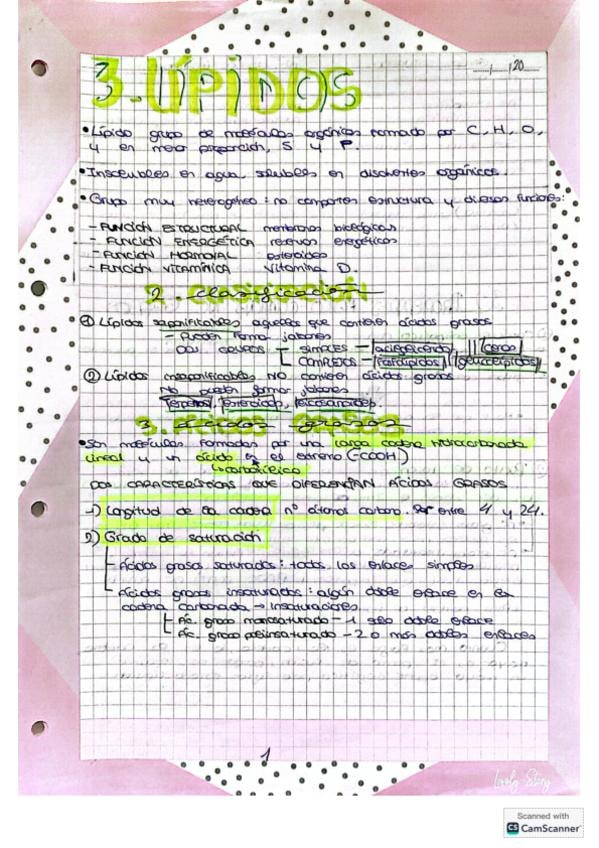 3. LÍPIDOS
__/__/20__
• Lípido grupo de moléculas orgánicas formado por C, H, O,
y en menor proporción, S y P.
• Insolubles en agua, solubles en disolventes orgánicos.
• Grupo muy heterogéneo: no comparten estructura y diversas funciones:
- FUNCIÓN ESTRUCTURAL membranas biológicas
- FUNCIÓN ENERGÉTICA reservas energéticas
- FUNCIÓN HORMONAL esteroides
- FUNCIÓN VITAMÍNICA Vitamina D.
2. Clasificación
① Lípidos saponificables aquellos que contienen ácidos grasos
- Pueden formar jabones
DOS GRUPOS - SIMPLES - acilglicéridos ceras
COMPLEJOS - fosfolípidos glucolípidos
② Lípidos insaponificables NO contienen ácidos grasos
No pueden formar jabones
Terpenos, esteroides, eicosanoides
3. Ácidos grasos
• Son moléculas formadas por una larga cadena hidrocarbonada
lineal y un ácido en el extremo (-COOH)
↳ carboxílico
DOS CARACTERÍSTICAS QUE DIFERENCIAN ÁCIDOS GRASOS
1) Longitud de la cadena nº átomos carbono. entre 4 y 24.
2) Grado de saturación
Ácidos grasos saturados: todos los enlaces simples
Ácidos grasos insaturados: algún doble enlace en la
cadena carbonada → Insaturaciones
Ác. graso monosaturado - 1 solo doble enlace
Ác. graso poliinsaturado - 2 o más dobles enlaces
1
Lovely Story
Scanned with
CS CamScanner